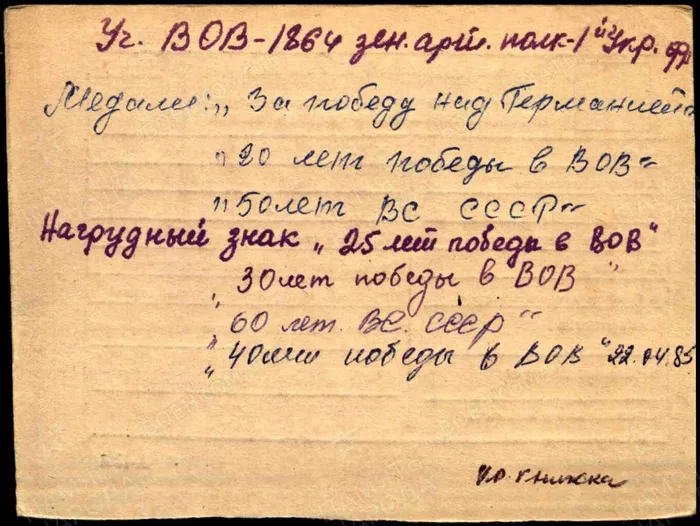 Уч. ВОВ-1864 зен. арт. полк-1й Укр. фр
Медали: „За победу над Германией"
„20 лет победы в ВОВ"
„50 лет ВС СССР"
Нагрудный знак „25 лет победы в ВОВ"
„30 лет победы в ВОВ"
„60 лет. ВС. СССР"
„40 лет победы в ВОВ" 22.04.85
книжка